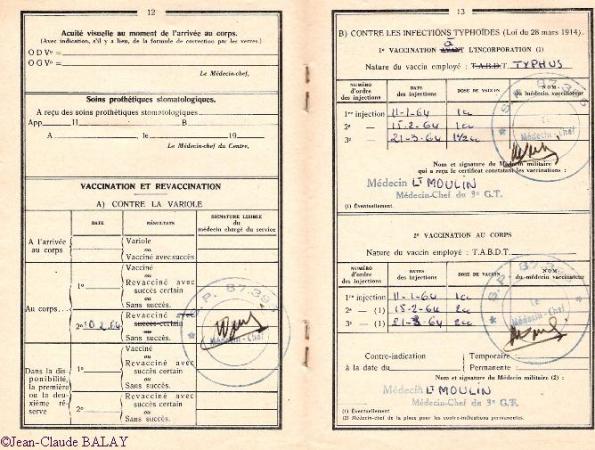 12
Acuité visuelle au moment de l'arrivée au corps.
(Avec indication, s'il y a lieu, de la formule de correction par les verres.)
O D Vᵉ =
O G Vᵉ =
Le Médecin-chef,
Soins prothétiques stomatologiques.
A reçu des soins prothétiques stomatologiques
App H B
A , le 19
Le Médecin-chef du Centre,
VACCINATION ET REVACCINATION
A) CONTRE LA VARIOLE
DATE
RÉSULTATS
SIGNATURE LISIBLE
du
médecin chargé du service
A l'arrivée
au corps
Variole
ou
Vacciné avec succès
Au corps...
1º
Vacciné
ou
Revacciné avec
succès certain
ou
Sans succès.
2º 10.2.64
Revacciné avec
succès certain
ou
Sans succès.
S.P. 87.395
Médecin-Chef
Dans la dis-
ponibilité,
la première
ou la deu-
xième ré-
serve
1º
Vacciné
ou
Revacciné avec
succès certain
ou
Sans succès.
2º
Revacciné avec
succès certain
ou
Sans succès.
13
B) CONTRE LES INFECTIONS TYPHOÏDES (Loi du 28 mars 1914).
1º VACCINATION à L'INCORPORATION (1)
Nature du vaccin employé : T.A.B.D.T. TYPHUS
NUMÉRO
d'ordre
des injections
DATES
des
injections
DOSE DE VACCIN
NOM
du médecin vaccinateur
1ʳᵉ injection 11-1-64 1cc
2ᵉ — 15.2-64 1cc
3ᵉ — 21-3-64 1½cc
S.P. 87.395
Le
Médecin-Chef
Nom et signature du Médecin militaire
qui a reçu le certificat constatant les vaccinations :
Médecin Lᵗ MOULIN
Médecin-Chef du 9ᵉ G.T.
(1) Éventuellement.
2º VACCINATION AU CORPS
Nature du vaccin employé : T.A.B.D.T.
NUMÉRO
d'ordre
des injections
DATES
des
injections
DOSE DE VACCIN
NOM
du médecin vaccinateur
1ʳᵉ injection 11-1-64 1cc
2ᵉ — (1) 15.2-64 2cc
3ᵉ — (1) 21-3-64 2cc
S.P. 87.395
Le
Médecin-Chef
Contre-indication
à la date du
Temporaire
Permanente
Nom et signature du Médecin militaire (2) :
Médecin Lᵗ MOULIN
Médecin-Chef du 9ᵉ G.T.
(1) Éventuellement
(2) Médecin de la place pour les contre-indications permanentes.
©Jean-Claude BALAY